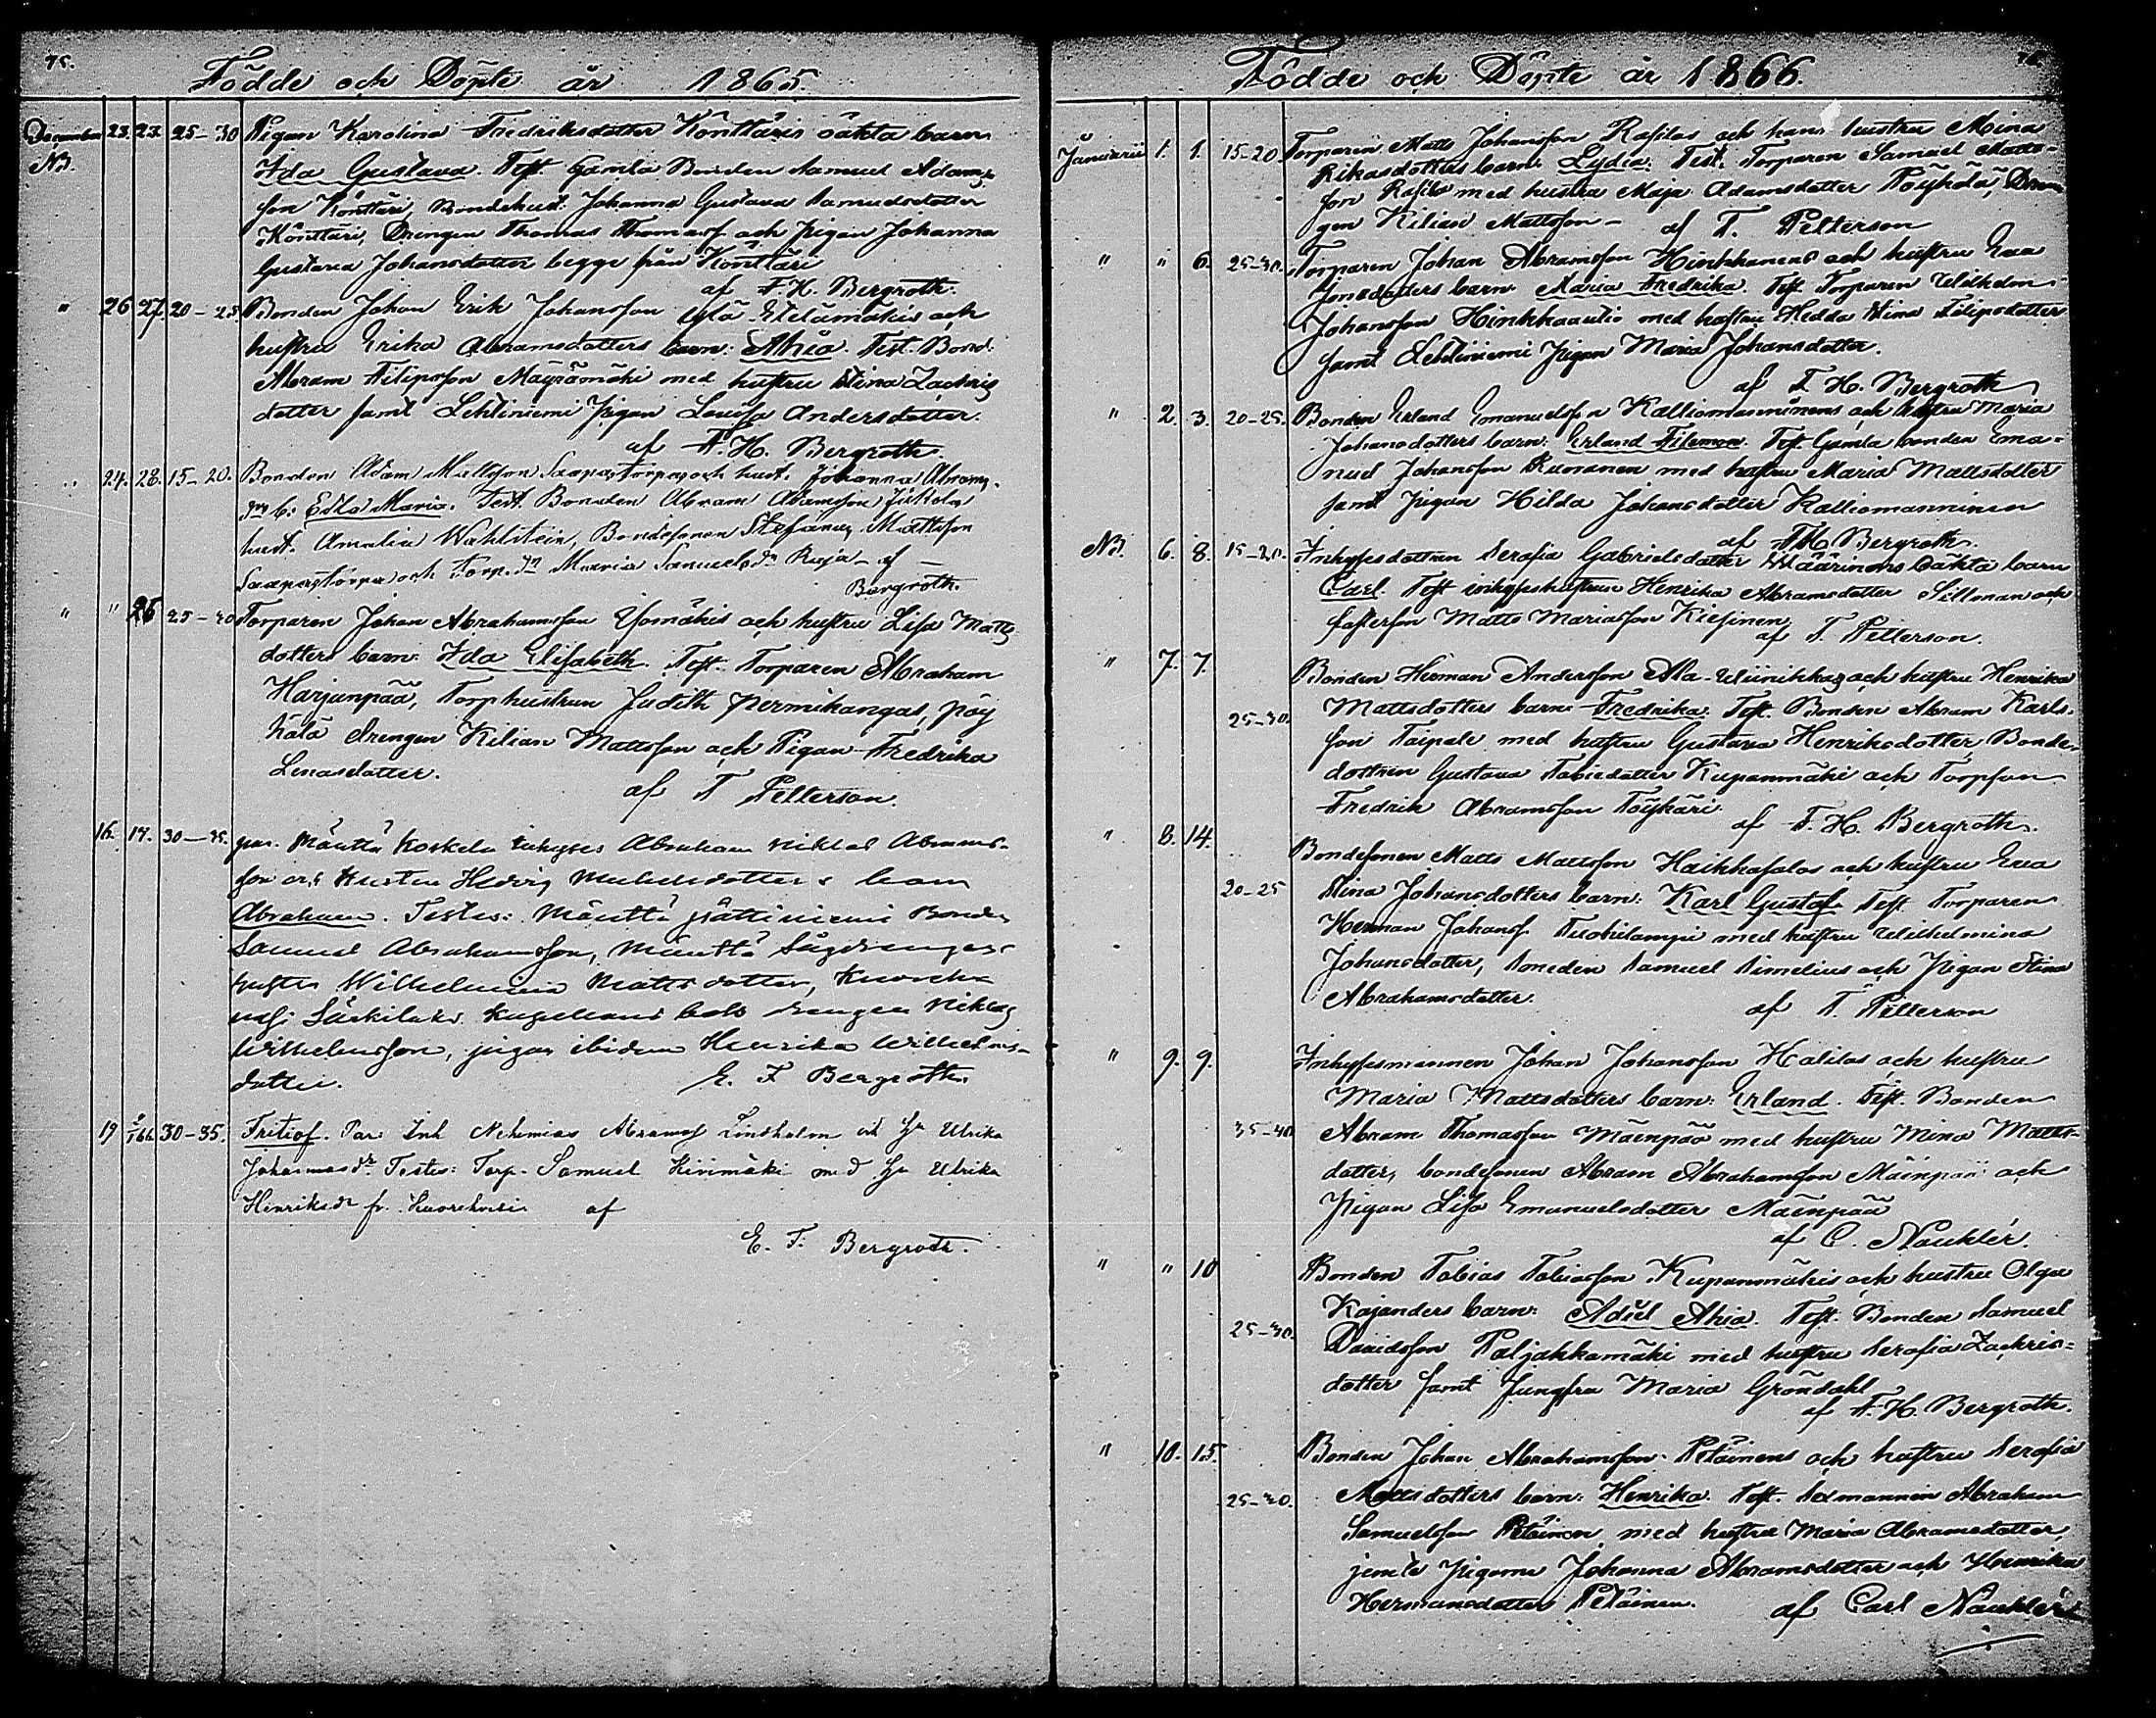 75.
Födde och Döpte år 1865.
December 23. 23. 25-30 Pigan Karolina Fredriksdotter Könttäris oäkta barn
N3. Ida Gustava. Test. Gamla Bonden Samuel Adams-
son Könttäri, Bondehust. Johanna Gustava Samuelsdotter
Könttäri, Drengen Thomas Thomass och pigan Johanna
Gustava Johansdotter begge från Könttäri
af F. H. Bergroth.
" 26 27. 20-25. Bonden Johan Erik Johansson Ylä Etelämäkis och
hustru Erika Abramsdotters barn: Ahia. Test. Bond:
Abram Filipsson Mäyrämäki med hustru Stina Zachris
dotter samt Lehtiniemi Pigan Lovisa Andersdotter.
af F. H. Bergroth.
" 24. 28. 15-20. Bonden Adam Mattsson Saapastorpas och hust. Johanna Abrams-
dr b: Edla Maria. Test. Bonden Abram Adamsson Jukola
hust. Amalia Wahlstein, Bondesonen Stefanus Mattsson
Saapastorpa och Torp.dr Maria Samuelsdr Ruja - af -
Bergroth.
" " 26 25-30 Torparen Johan Abrahamsson Yomäkis och hustru Lisa Matts
dotters barn: Ida Elisabeth. Test. Torparen Abraham
Harjunpää, Torphustrun Judith permikangas, pöy
hölä drengen Kilian Mattsson och Pigan Fredrika
Lenasdotter.
af T Petterson.
16. 17. 30-35. par. Mänttä Koskela inhyses Abraham Niklas Abrams-
son och Hustru Hedvig Michelsdotters barn
Abraham. Testes: Mänttä pättiniemi Bonden
Samuel Abrahamsson, Mänttä Sågdrenges-
hustru Wilhelmina Mattsdotter,
drengen Niklas
Wilhelmsson, pigan ibidem Henrika Wilhelms-
dotter. E. F Bergroth.
19 30-35. Fritiof. Par: Inh Nehemias Abramss Lindholm och hu Ulrika
Johannasdr Testes: Torp. Samuel Kivimäki med hu Ulrika
Henriksdr fr. af
E. F. Bergroth.
76
Födde och Döpte år 1866.
Januarii 1. 1. 15-20 Torparen Matts Johansson Rasilas och hans hustru Mina
Rikasdotters barn: Lydia. Test. Torparen Samuel Matts-
son Rasila med hustru Maja Adamsdotter Pöyhölä, Dren
gen Kilian Mattsson - af T. Petterson
" " 6. 25-30. Torparen Johan Abramsson Hinkkanens och hustru Eva
Jonsdotters barn Maria Fredrika. Test. Torparen Wilhelm
Johansson Hinkkaautio med hustru Hedda Stina Filipsdotter
samt Lehtiniemi Pigan Maria Johansdotter.
af F. H. Bergroth
" 2. 3. 20-25. Bonden Erland Emanuelsson Kalliomanninens och hustru Maria
Johansdotters barn: Erland Filemon. Test. Gamla bonden Ema-
nuel Johansson Kuronen med hustru Maria Mattsdotter
samt Pigan Hilda Johansdotter Kalliomanninen
af F. H. Bergroth.
N3. 6. 8. 15-20. Inhysesdottren Serafia Gabrielsdotter Määrinens oäkta barn
Carl. Test inhyseshustrun Henrika Abramsdotter Sillman och
Matts Mariasson Kiesinen
af T. Petterson.
" 7. 7. 25-30. Bonden Herman Andersson Ala-Wiinikkas och hustru Henrika
Mattsdotters barn: Fredrika. Test. Bonden Abram Karls-
son Taipale med hustru Gustava Henriksdotter Bonde-
dottren Gustava Tobiedotter Kupanmäki och Torpson
Fredrik Abramsson Töyhäri.
af F. H. Bergroth.
" 8. 14. 20-25 Bondesonen Matts Mattsson Haikkasalos och hustru Eva
Stina Johansdotters barn: Karl Gustaf. Test. Torparen
Herman Johanss. Tuohilampi med hustru Wilhelmina
Johansdotter, Smeden Samuel Simelius och Pigan Stina
Abrahamsdotter. af T. Petterson
" 9. 9. 35-40 Inhysesmannen Johan Johansson Halilas och hustru
Maria Mattsdotters barn: Erland. Test. Bonden
Abram Thomasson Mäenpää med hustru Mina Matts-
dotter, bondesonen Abram Abrahamsson Mäenpää och
Pigan Lisa Emanuelsdotter Mäenpää
af C. Nauklér.
" " 10 25-30. Bonden Tobias Tobiasson Kupanmäkis och hustru Olga
Kajanders barn: Adiel Ahia. Test. Bonden Samuel
Davidsson Paljakkamäki med hustru Serafia Zachris-
dotter samt Jungfru Maria Gröndahl
af F. H. Bergroth.
" 10. 15. 25-30. Bonden Johan Abrahamsson Petäinens och hustru Serafia
Mattsdotters barn: Henrika. Test. Sexmannen Abraham
Samuelsson Petäinen med hustru Maria Abramsdotter
jemte Pigorna Johanna Abramsdotter och Henrika
Hermansdotter Petäinen. af Carl Nauklér